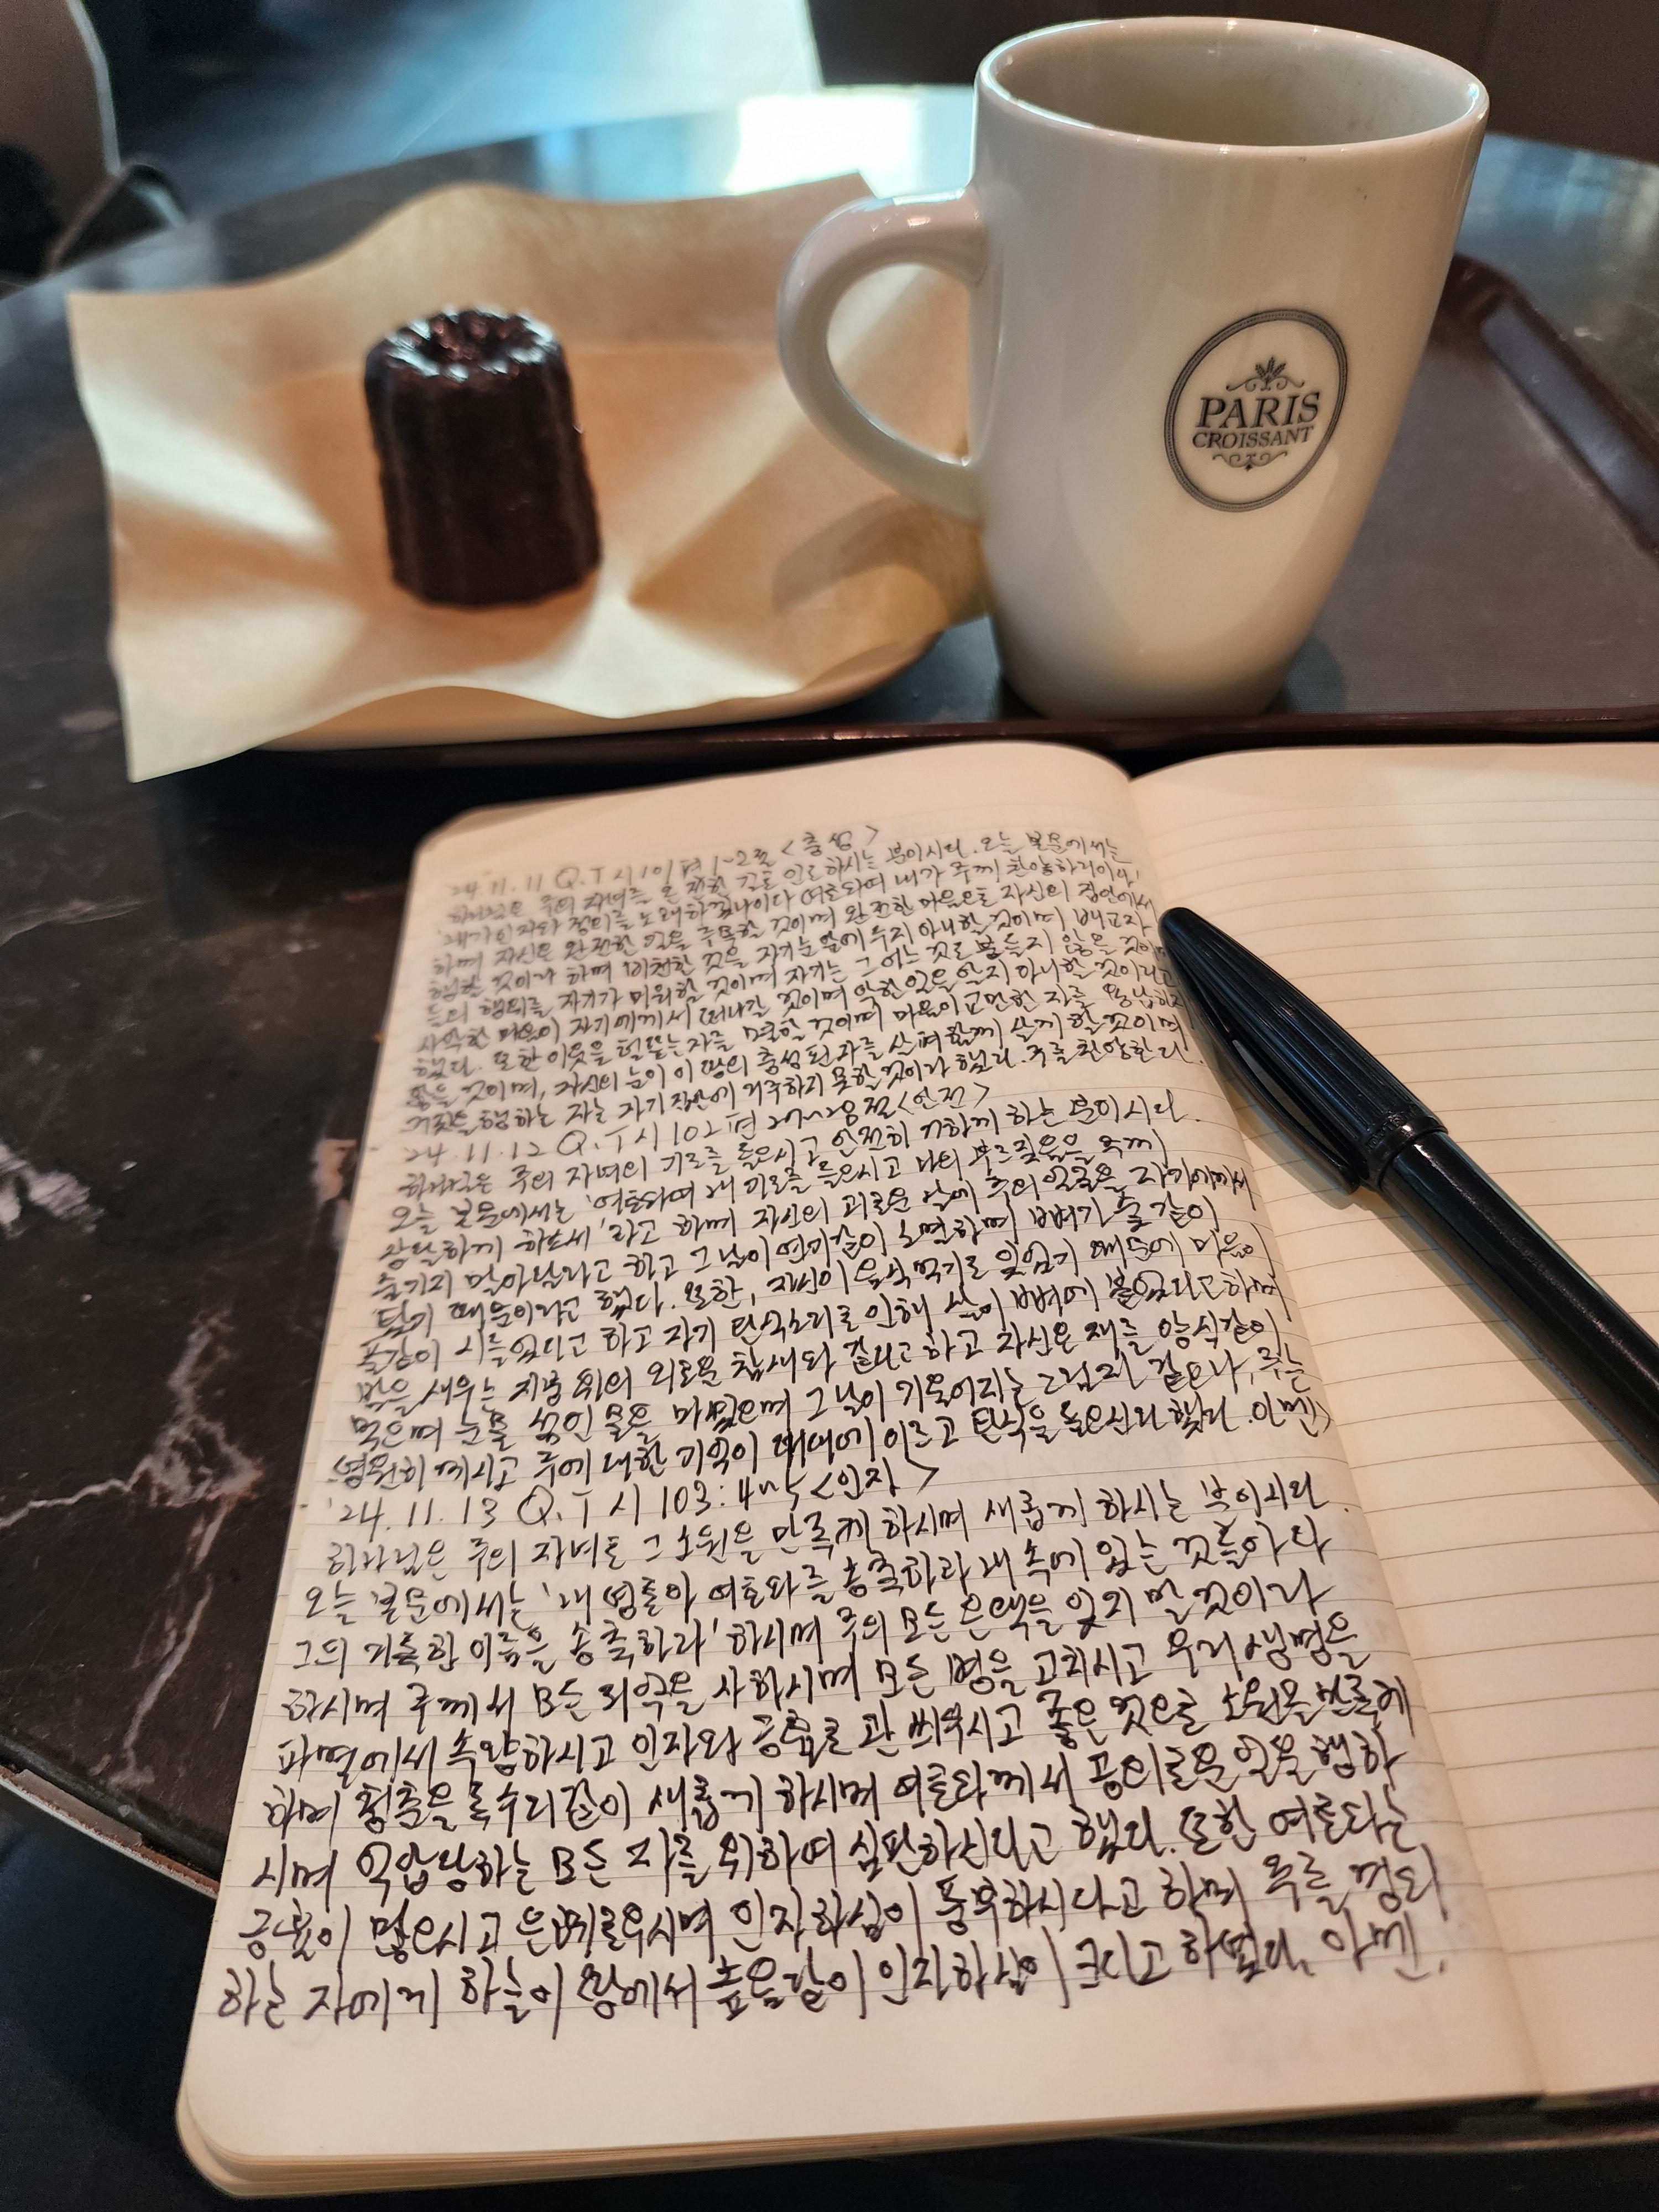 PARIS
CROISSANT
'24.11.11 Q.T 시 101편 1~2절 <충성>
하나님은 주의 자녀를 온전한 길로 인도하시는 분이시다. 오늘 본문에서는
'내가 인자와 정의를 노래하겠나이다 여호와여 내가 주께 찬양하리이다'
하며 자신은 완전한 길을 주목할 것이며 완전한 마음으로 자신의 집안에서
행할 것이라 하며 비천한 것을 자기 눈앞에 두지 아니할 것이며 배교자
들의 행위를 자기가 미워할 것이며 자기는 그 어느 것도 붙들지 않을 것이며
사악한 마음이 자기에게서 떠나갈 것이며 악한 일을 알지 아니할 것이라고
했다. 또한 이웃을 헐뜯는 자를 멸할 것이며 마음이 교만한 자를 용납하지
않을 것이며, 자신의 눈이 이 땅의 충성된 자를 살펴 함께 살게 할 것이며
거짓을 행하는 자는 자기 집안에 거주하지 못할 것이라 했다. 주를 찬양한다.
24.11.12 Q.T 시 102편 27~28절 <안전>
하나님은 주의 자녀의 기도를 들으시고 안전히 거하게 하는 분이시다.
오늘 본문에서는 '여호와여 내 기도를 들으시고 나의 부르짖음을 주께
상달하게 하소서'라고 하며 자신의 괴로운 날에 주의 얼굴을 자기에게서
숨기지 말아달라고 하고 그 날이 연기같이 소멸하며 뼈가 숯같이
탔기 때문이라고 했다. 또한, 자신이 음식 먹기도 잊었기 때문에 마음이
풀같이 시들었다고 하고 자기 탄식소리로 인해 살이 뼈에 붙었다고 하며
밤을 새우는 지붕 위의 외로운 참새와 같다고 하고 자신은 재를 양식같이
먹으며 눈물 섞인 물을 마셨으며 그 날이 기울어지는 그림자 같으나, 주는
영원히 계시고 주에 대한 기억이 대대에 이르고 탄식을 들으신다 했다. 아멘
'24.11.13 Q.T 시 103:4~5 <인자>
하나님은 주의 자녀로 그 소원을 만족케 하시며 새롭게 하시는 분이시다.
오늘 본문에서는 '내 영혼아 여호와를 송축하라 내 속에 있는 것들아 다
그의 거룩한 이름을 송축하라' 하시며 주의 모든 은택을 잊지 말 것이라
하시며 주께서 모든 죄악을 사하시며 모든 병을 고치시고 우리 생명을
파멸에서 속량하시고 인자와 긍휼로 관 씌우시고 좋은 것으로 소원을 만족케
하며 청춘을 독수리같이 새롭게 하시며 여호와께서 공의로운 일을 행하
시며 억압당하는 모든 자를 위하여 심판하신다고 했다. 또한 여호와는
긍휼이 많으시고 은혜로우시며 인자하심이 풍부하시다고 하며 주를 경외
하는 자에게 하늘이 땅에서 높음같이 인자하심이 크다고 하셨다. 아멘.